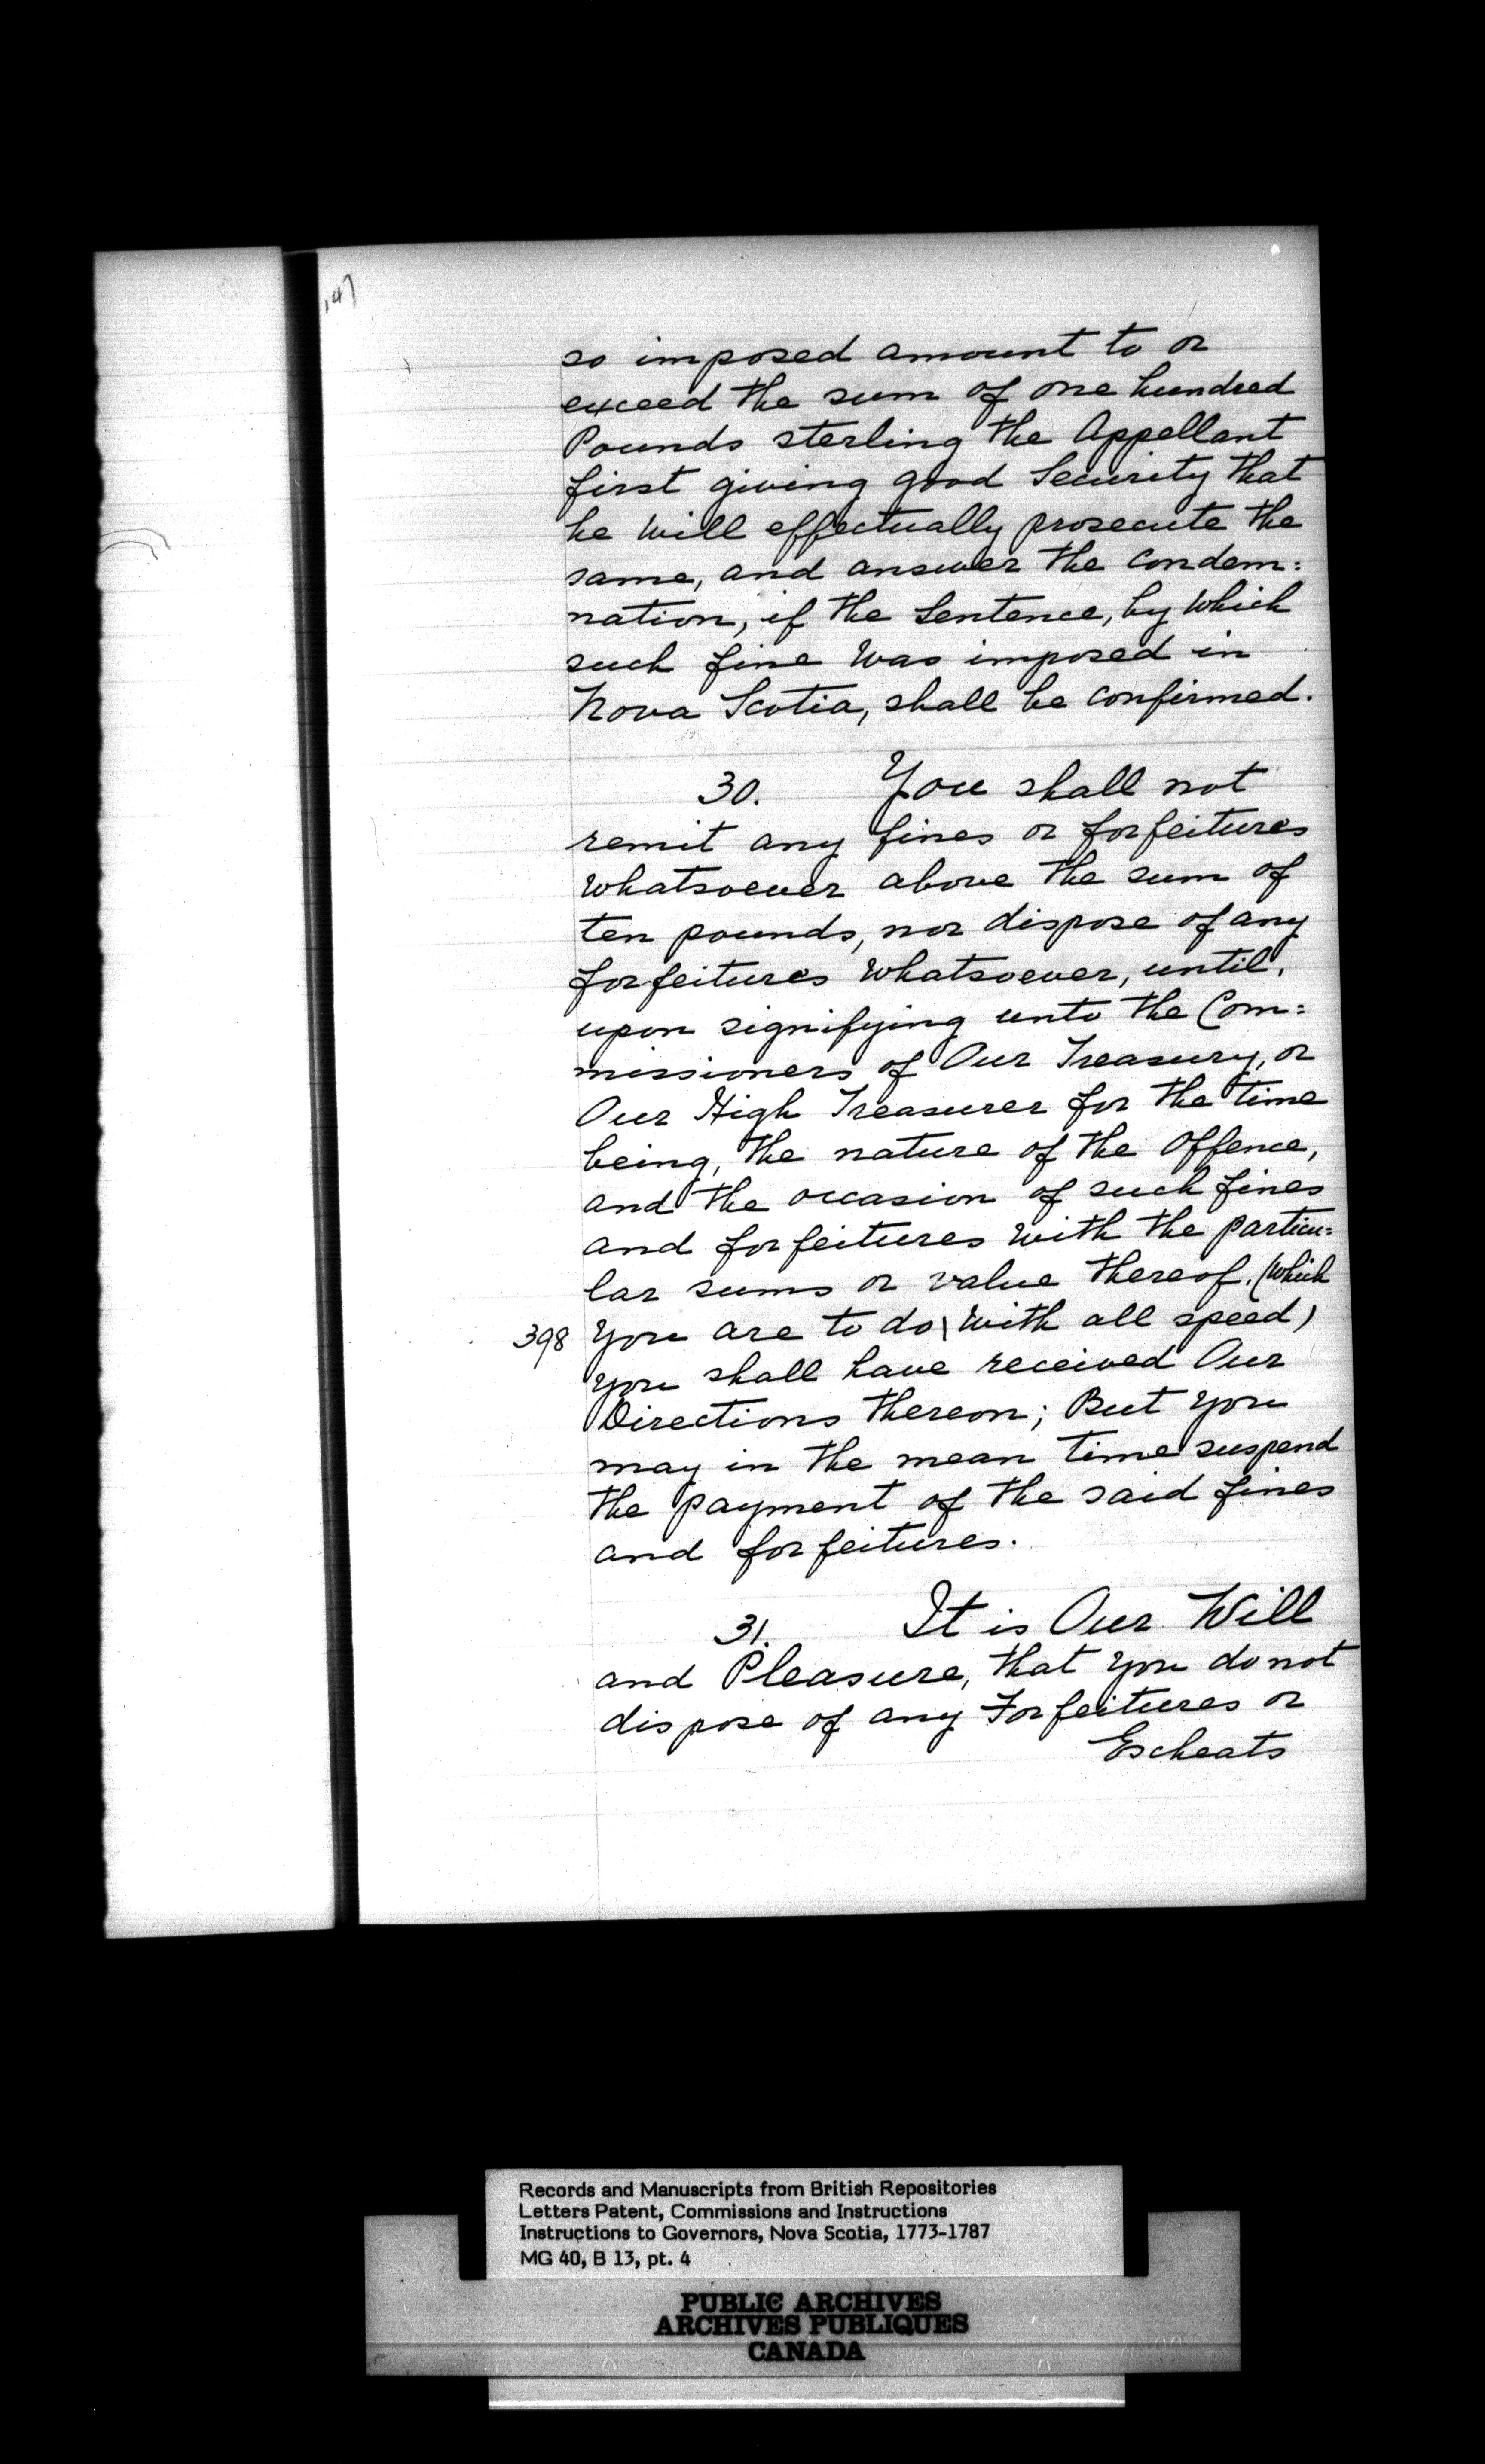 147
so imposed amount to or
exceed the sum of one hundred
Pounds sterling the Appellant
first giving good Security that
he will effectually prosecute the
same, and answer the condem:
nation, if the Sentence, by which
such fine was imposed in
Nova Scotia, shall be confirmed.
30. You shall not
remit any fines or forfeitures
whatsoever above the sum of
ten pounds, nor dispose of any
forfeitures whatsoever, until,
upon signifying unto the Com:
missioners of Our Treasury, or
Our High Treasurer for the time
being, the nature of the Offence,
and the occasion of such fines
and forfeitures with the particu:
lar sums or value thereof. (which
398 you are to do \ with all speed)
you shall have received Our
Directions thereon; But you
may in the mean time suspend
the payment of the said fines
and forfeitures.
31. It is Our Will
and Pleasure, that you do not
dispose of any Forfeitures or
Escheats
Records and Manuscripts from British Repositories
Letters Patent, Commissions and Instructions
Instructions to Governors, Nova Scotia, 1773-1787
MG 40, B 13, pt. 4
PUBLIC ARCHIVES
ARCHIVES PUBLIQUES
CANADA